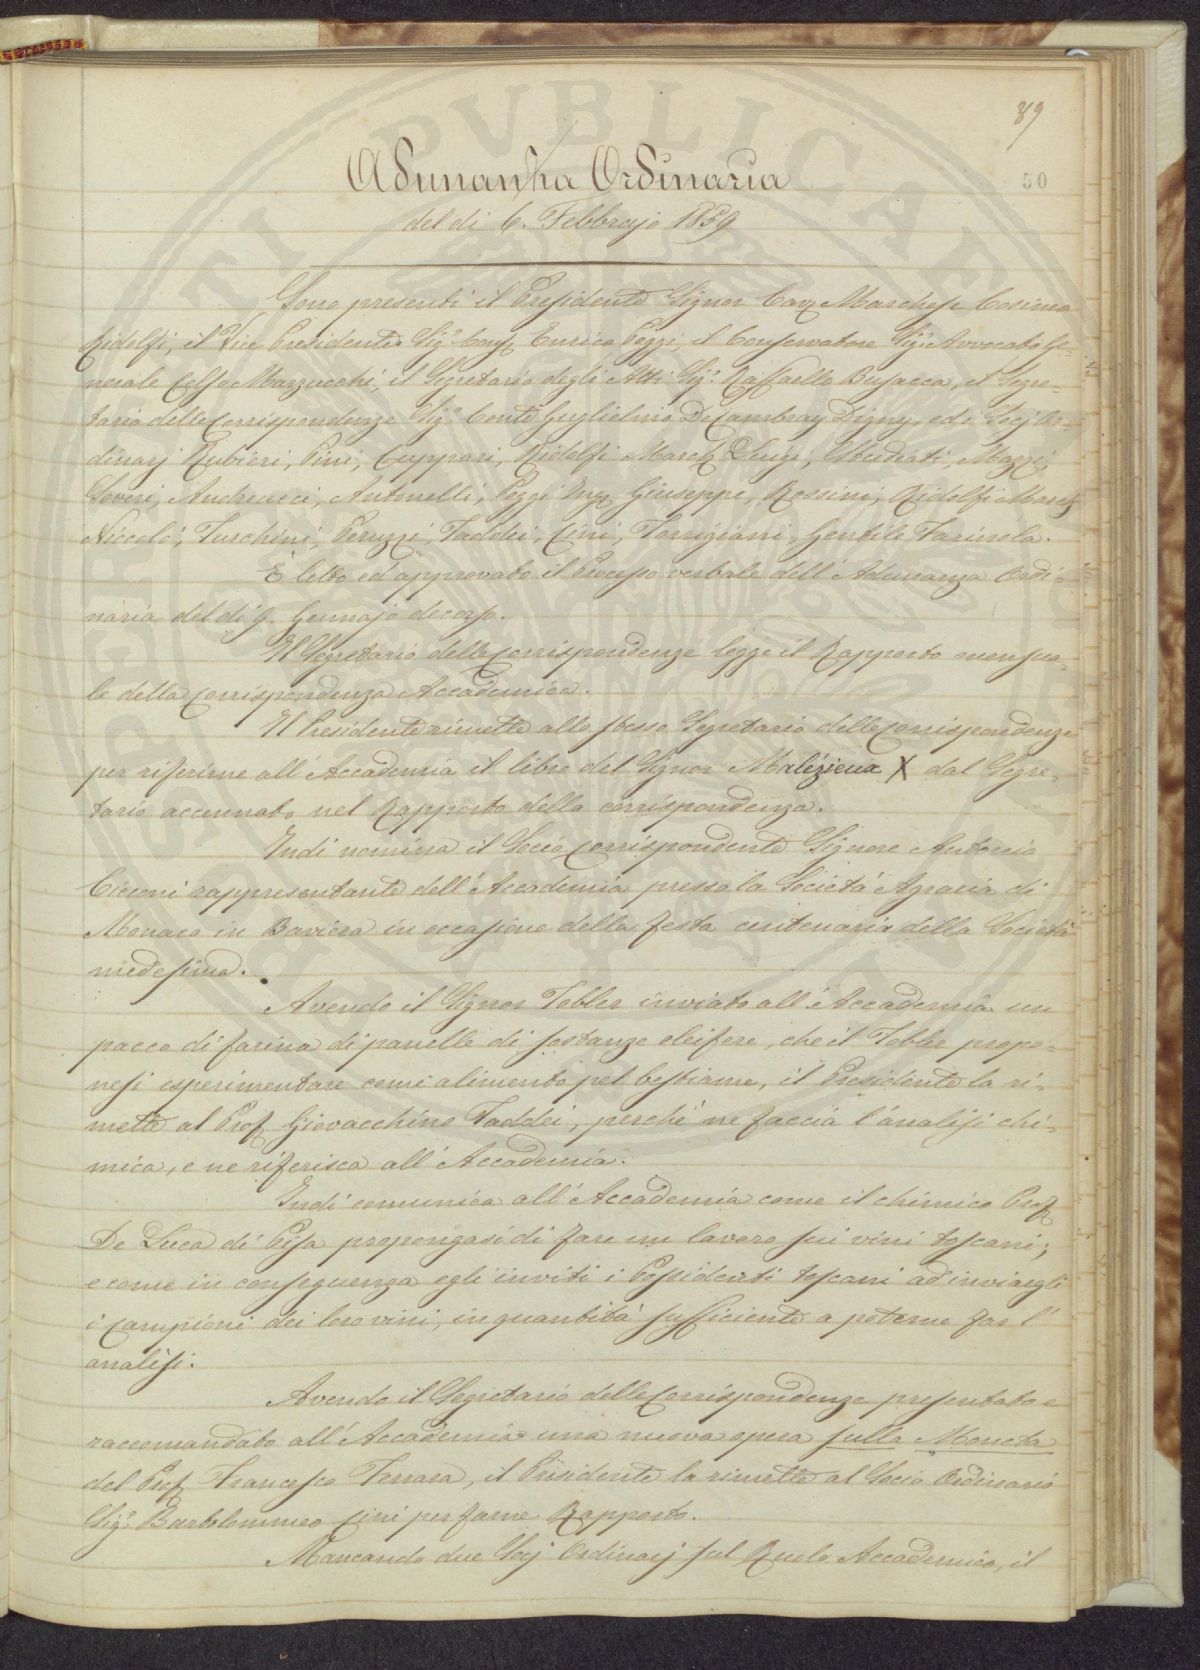 89
50
Adunanza Ordinaria
del di 6. Febbrajo 1859
Sono presenti il Presidente Signor Cav. Marchese Cosimo
Ridolfi, il Vice Presidente Sigr. Cav. Enrico Poggi, il Conservatore Sigr. Avvocato Ge-
nerale Celso Marzucchi, il Segretario degli Atti Sigr. Raffaello Busacca, il Segre-
tario delle Corrispondenze Sigr. Conte Guglielmo De Cambray Digny, ed i Socj Or-
dinarj Rubieri, Pini, Cuppari, Ridolfi March. Luigi, Mazzi,
Saveri, Andreucci, Antinelli, Poggi Ing. Giuseppe, Rossini, Ridolfi March.
Niccolò, Turchini, Peruzzi, Taddei, Cini, Torrigiani, Gentile Farinola.
È letto ed approvato il Processo verbale dell'Adunanza Ordi-
naria del dì 9. Gennajo decorso.
Il Segretario delle Corrispondenze legge il Rapporto mensua-
le della Corrispondenza Accademica.
Il Presidente rimette allo stesso Segretario delle Corrispondenze
per riferirne all'Accademia il libro del Signor Malézieux X dal Segre-
tario accennato nel Rapporto della corrispondenza.
Indi nomina il Socio Corrispondente Signore Antonio
Cicconi rappresentante dell'Accademia presso la Società Agraria di
Monaco in Baviera in occasione della festa centenaria della Società
medesima.
Avendo il Signor Tobler inviato all'Accademia un
pacco di farina di panelle di sostanze oleifere, che il Tobler propo-
nesi esperimentare come alimento pel bestiame, il Presidente la ri-
mette al Prof. Giovacchino Taddei, perchè ne faccia l'analisi chi-
mica, e ne riferisca all'Accademia.
Indi comunica all'Accademia come il chimico Prof.
De Luca di Pisa propongasi di fare un lavoro sui vini toscani;
e come in conseguenza egli inviti i Possidenti toscani ad inviargli
i campioni dei loro vini, in quantità sufficiente a poterne far l'
analisi.
Avendo il Segretario delle Corrispondenze presentato e
raccomandato all'Accademia una nuova opera sulla Moneta
del Prof. Francesco Ferrara, il Presidente la rimette al Socio Ordinario
Sigr. Bartolommeo Cini per farne Rapporto.
Mancando due Socj Ordinarj sul Ruolo Accademico, il